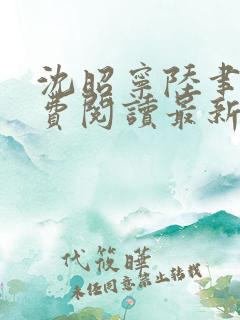 沈昭寧陸書
費閱讀最新
代筱曄
未经同意禁止转载